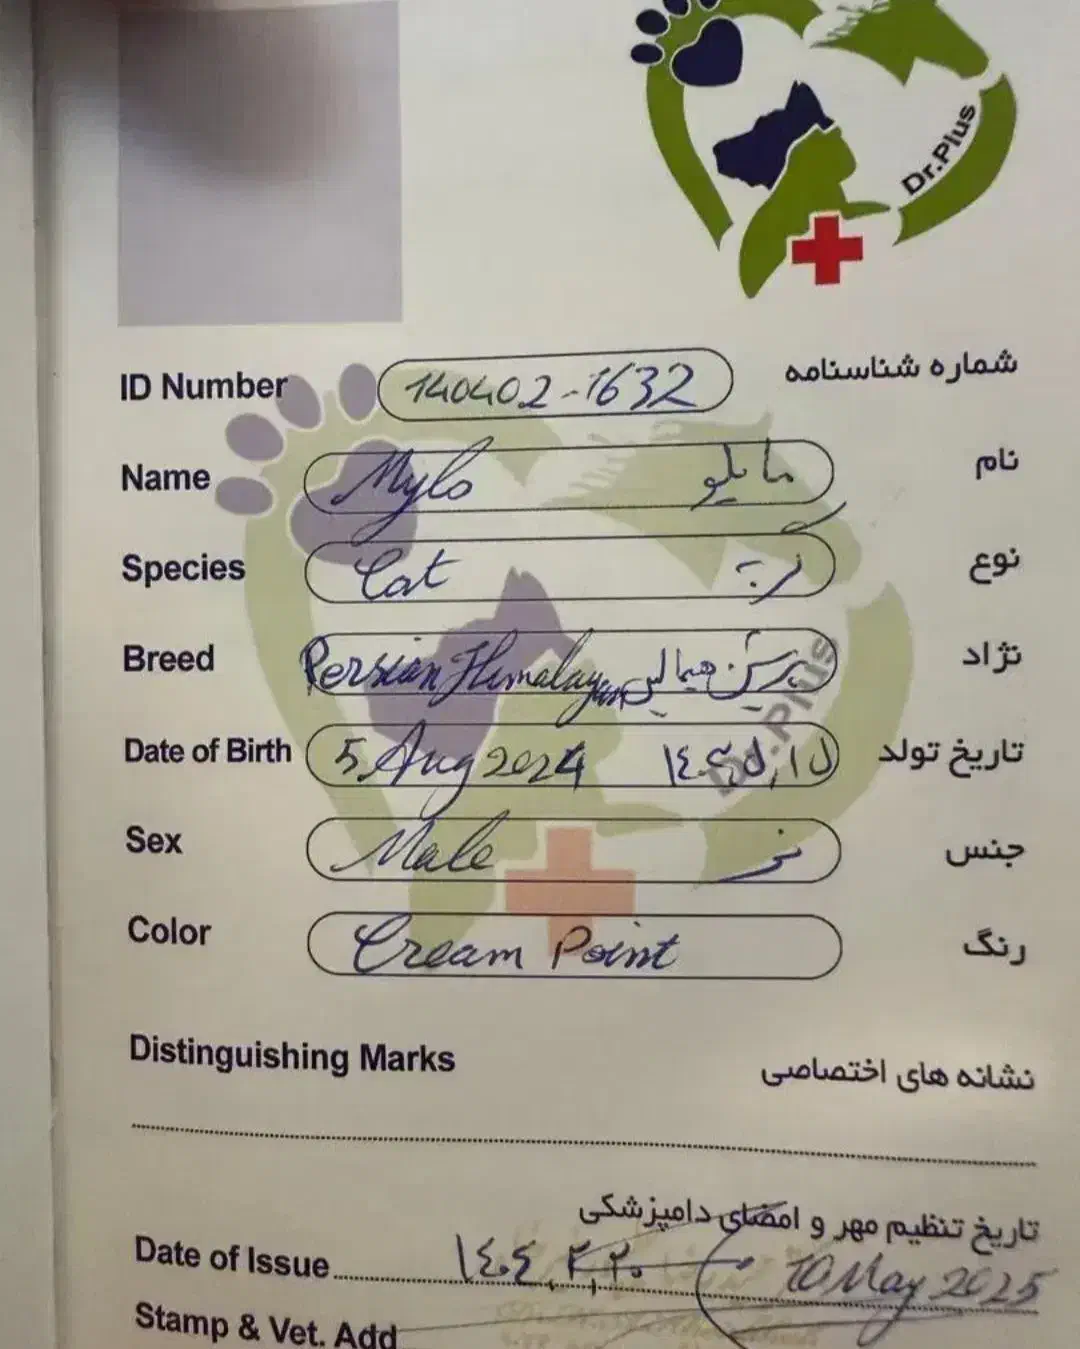 Dr.Plus
ID Number 140402-1632 شماره شناسنامه
Name Mylo مایلو نام
Species Cat گربه نوع
Breed Persian Himalayan پرشین هیمالین نژاد
Date of Birth 5 Aug 2024 ۱۴۰۳,۵,۱۵ تاریخ تولد
Sex Male نر جنس
Color Cream Point رنگ
Distinguishing Marks نشانه های اختصاصی
تاریخ تنظیم مهر و امضای دامپزشکی
Date of Issue ۱۴۰۴,۲,۲۰ 10 May 2025
Stamp & Vet. Add